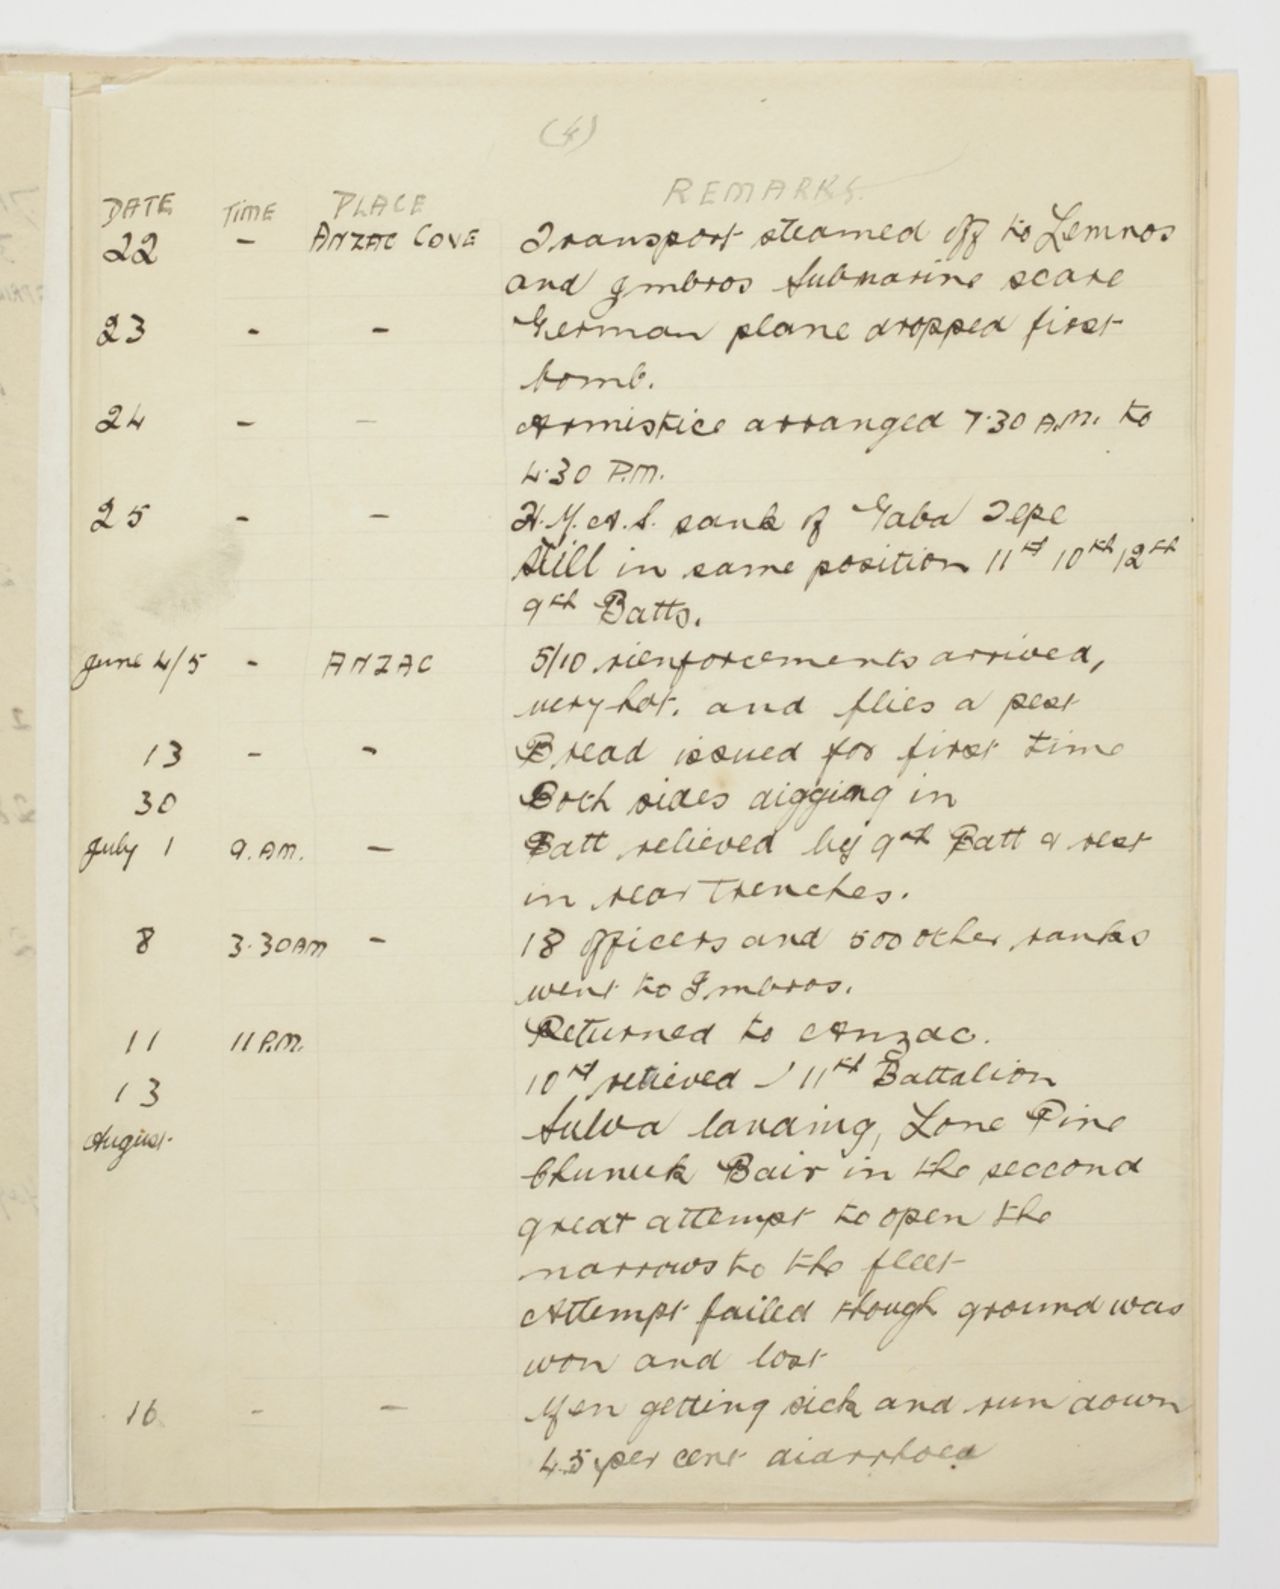 (4)
DATE TIME PLACE REMARKS.
22 - ANZAC COVE Transport steamed off to Lemnos
and Imbros Submarine scare
23 - - German plane dropped first
bomb.
24 - - Armistice arranged 7.30 A.M. to
4.30 P.M.
25 - - H.M.A.S. sank of Gaba Tepe
Still in same position 11th 10th 12th
9th Batts.
June 4/5 - ANZAC 5/10 rienforcements arrived,
very hot. and flies a pest
13 - - Bread issued for first time
30 Both sides digging in
July 1 9. AM. - Batt relieved by 9th Batt & rest
in rear Trenches.
8 3.30 AM - 18 officers and 500 other ranks
went to Imbros.
11 11 P.M. Returned to Anzac.
13 10th relieved 11th Battalion
August Sulva landing, Lone Pine
Chunuk Bair in the seccond
great attempt to open the
narrows to the fleet
Attempt failed though ground was
won and lost
16 - - Men getting sick and run down
45 per cent diarrhoea